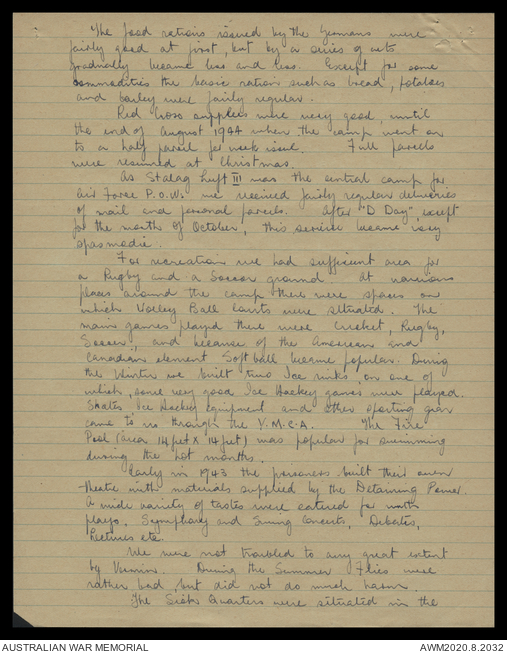 The food rations issued by the Germans were
fairly good at first, but by a series of cuts
gradually became less and less. Except for some
commodities the basic rations such as bread, potatoes
and barley were fairly regular.
Red Cross supplies were very good, until
the end of August 1944 when the camp went on
to a half parcel per week issue. Full parcels
were resumed at Christmas.
As Stalag Luft III was the central camp for
Air Force P.O.W. we received fairly regular deliveries
of mail and personal parcels. After "D Day", except
for the month of October, this service became very
spasmodic.
For recreation we had sufficient area for
a Rugby and a Soccer ground. At various
places around the camp there were spaces on
which Volley Ball Courts were situated. The
main games played there were Cricket, Rugby,
Soccer, and because of the American and
Canadian element Soft ball became popular. During
the Winter we built two Ice rinks, on one of
which, some very good Ice Hockey games were played.
Skates Ice Hockey Equipment and other sporting gear
came to us through the Y.M.C.A. The Fire
Pool (area 14 feet x 14 feet) was popular for swimming
during the hot months.
Early in 1943 the prisoners built their own
theatre with materials supplied by the Detaining Power.
A wide variety of tastes were catered for with
plays, Symphony and Swing Concerts, Debates,
Lectures etc.
We were not troubled to any great extent
by Vermin. During the Summer Flies were
rather bad, but did not do much harm.
The Sick Quarters were situated in the
AUSTRALIAN WAR MEMORIAL
AWM2020.8.2032